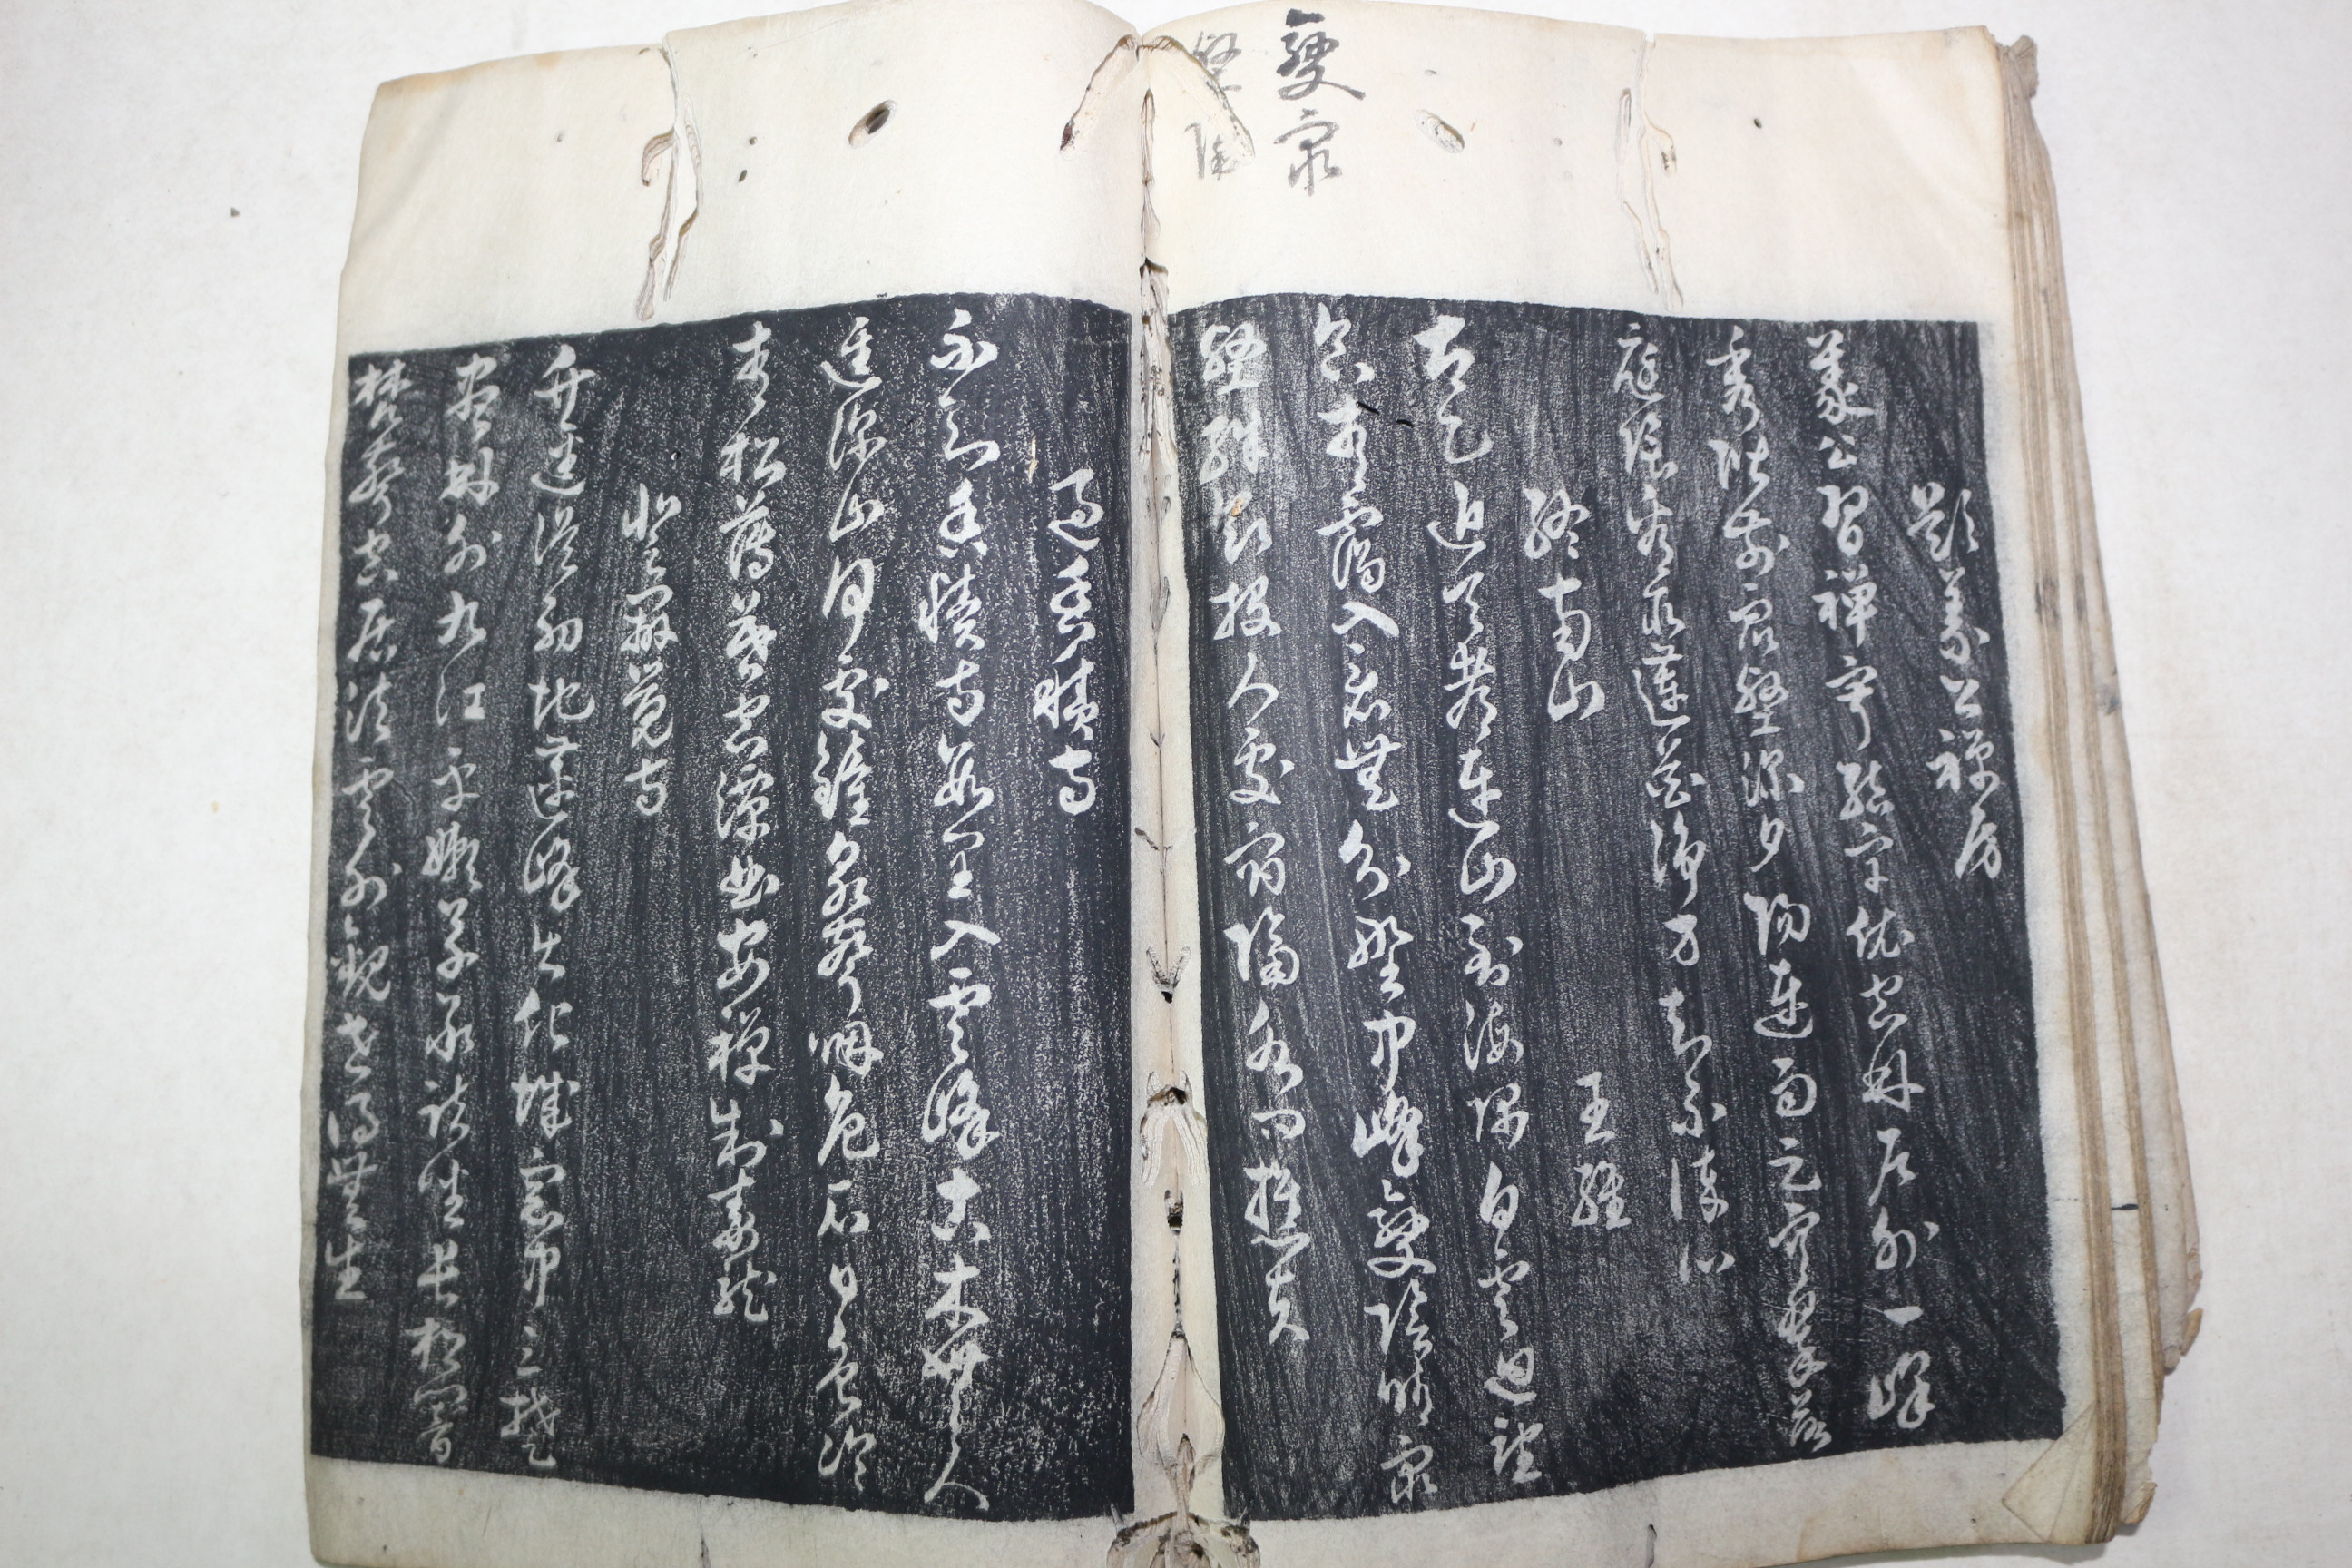 變衆
壑隔
題義公禪房
義公習禪寂結宇依空林戶外一峰
秀階前衆壑深夕陽連雨足空翠落
庭陰看取蓮花淨方知不染心
終南山 王維
太乙近天都連山到海隅白雲迴望
合靑靄入看無分野中峰變陰晴衆
壑殊欲投人處宿隔水問樵夫
過香積寺
不知香積寺數里入雲峰古木無人
逕深山何處鐘泉聲咽危石日色冷
靑松薄暮空潭曲安禪制毒龍
登辨覺寺
竹逕從初地蓮峰出化城窓中三楚
盡林外九江平嫩草承趺坐長松響
梵聲空居法雲外觀世得無生